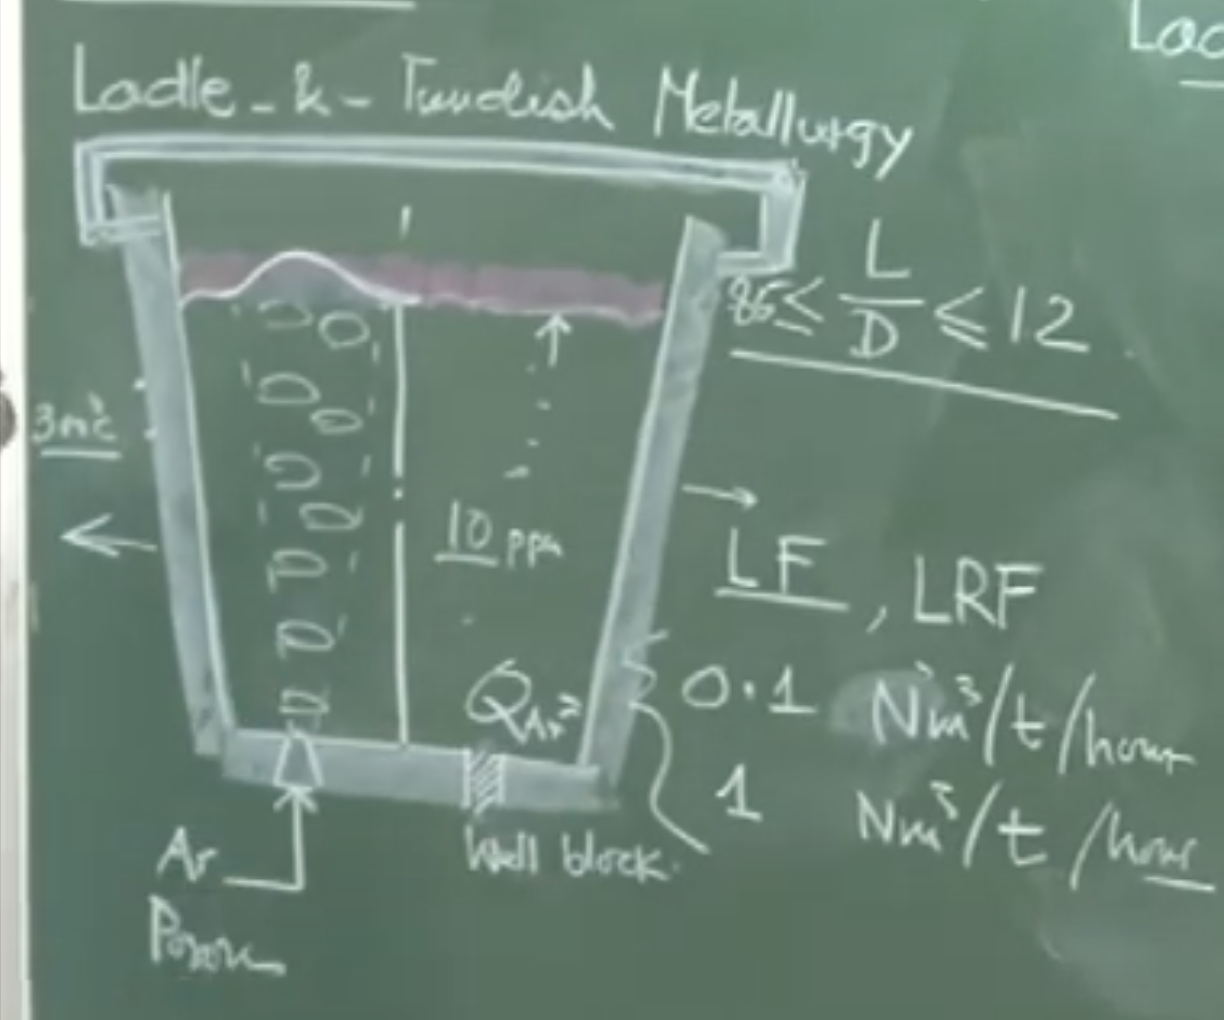 Lad
Ladle - & - Tundish Metallurgy
85 ≤ L/D ≤ 12
3m°c
10 ppm
LF, LRF
Q_Ar =
0.1 Nm³/t/hour
1 Nm³/t/hour
Ar
Well block.
Porous